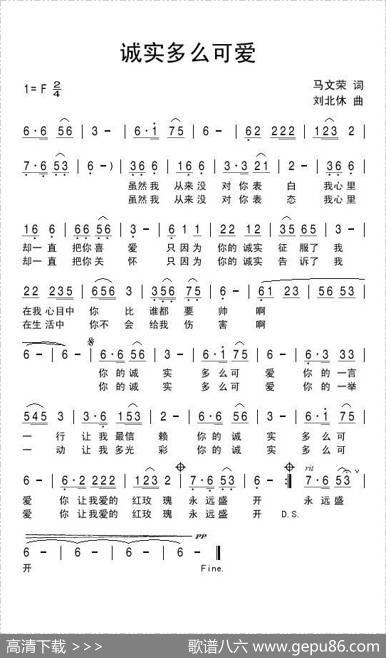 诚实多么可爱
1=F 2/4
马文荣 词
刘北休 曲
6·6 56 | 3 - | 6·1 75 | 6 - | 62 222 | 123 2 |
7·6 53 | 6 -) | 36 6 | 16 6 | 3·3 21 | 2 - | 36 6 |
虽然我 从来没 对你表 白 我心里
虽然我 从来没 对你表 态 我心里
16 6 | 66 56 | 3 - | 6 11 | 22 35 | 6·3 23 | 6 -
却一直 把你喜 爱 只因为 你的诚实 征服了我
却一直 把你关 怀 只因为 你的诚实 告诉了我
22 235 | 656 3 | 356 75 | 6 - | 61 23 | 56 53 |
在我心目中 你 比 谁都 要 帅 啊
在生活中 你 不会 给我 伤 害 啊
6 - | 6 - | 6·6 56 | 3 - | 6·1 75 | 6 - | 6·3 33 |
你的诚 实 多么可 爱 你的一言
你的诚 实 多么可 爱 你的一举
545 3 | 3·6 153 | 2 - | 6·6 56 | 3 - | 6·1 75 |
一 行 让我最信 赖 你的诚 实 多么可
一 动 让我多光 彩 你的诚 实 多么可
6 - | 6·6 222 | 123 2 | 7·6 53 | 6 - :| 7·6 53 |
rit
爱 你 让我爱的 红玫 瑰 永远盛 开 永远盛
爱 你 让我爱的 红玫 瑰 永远盛 开 D.S.
pp
6 - | 6 - | 6 - | 6 - ‖
开 Fine.
高清下载 >>> 歌谱八六 www.gepu86.com